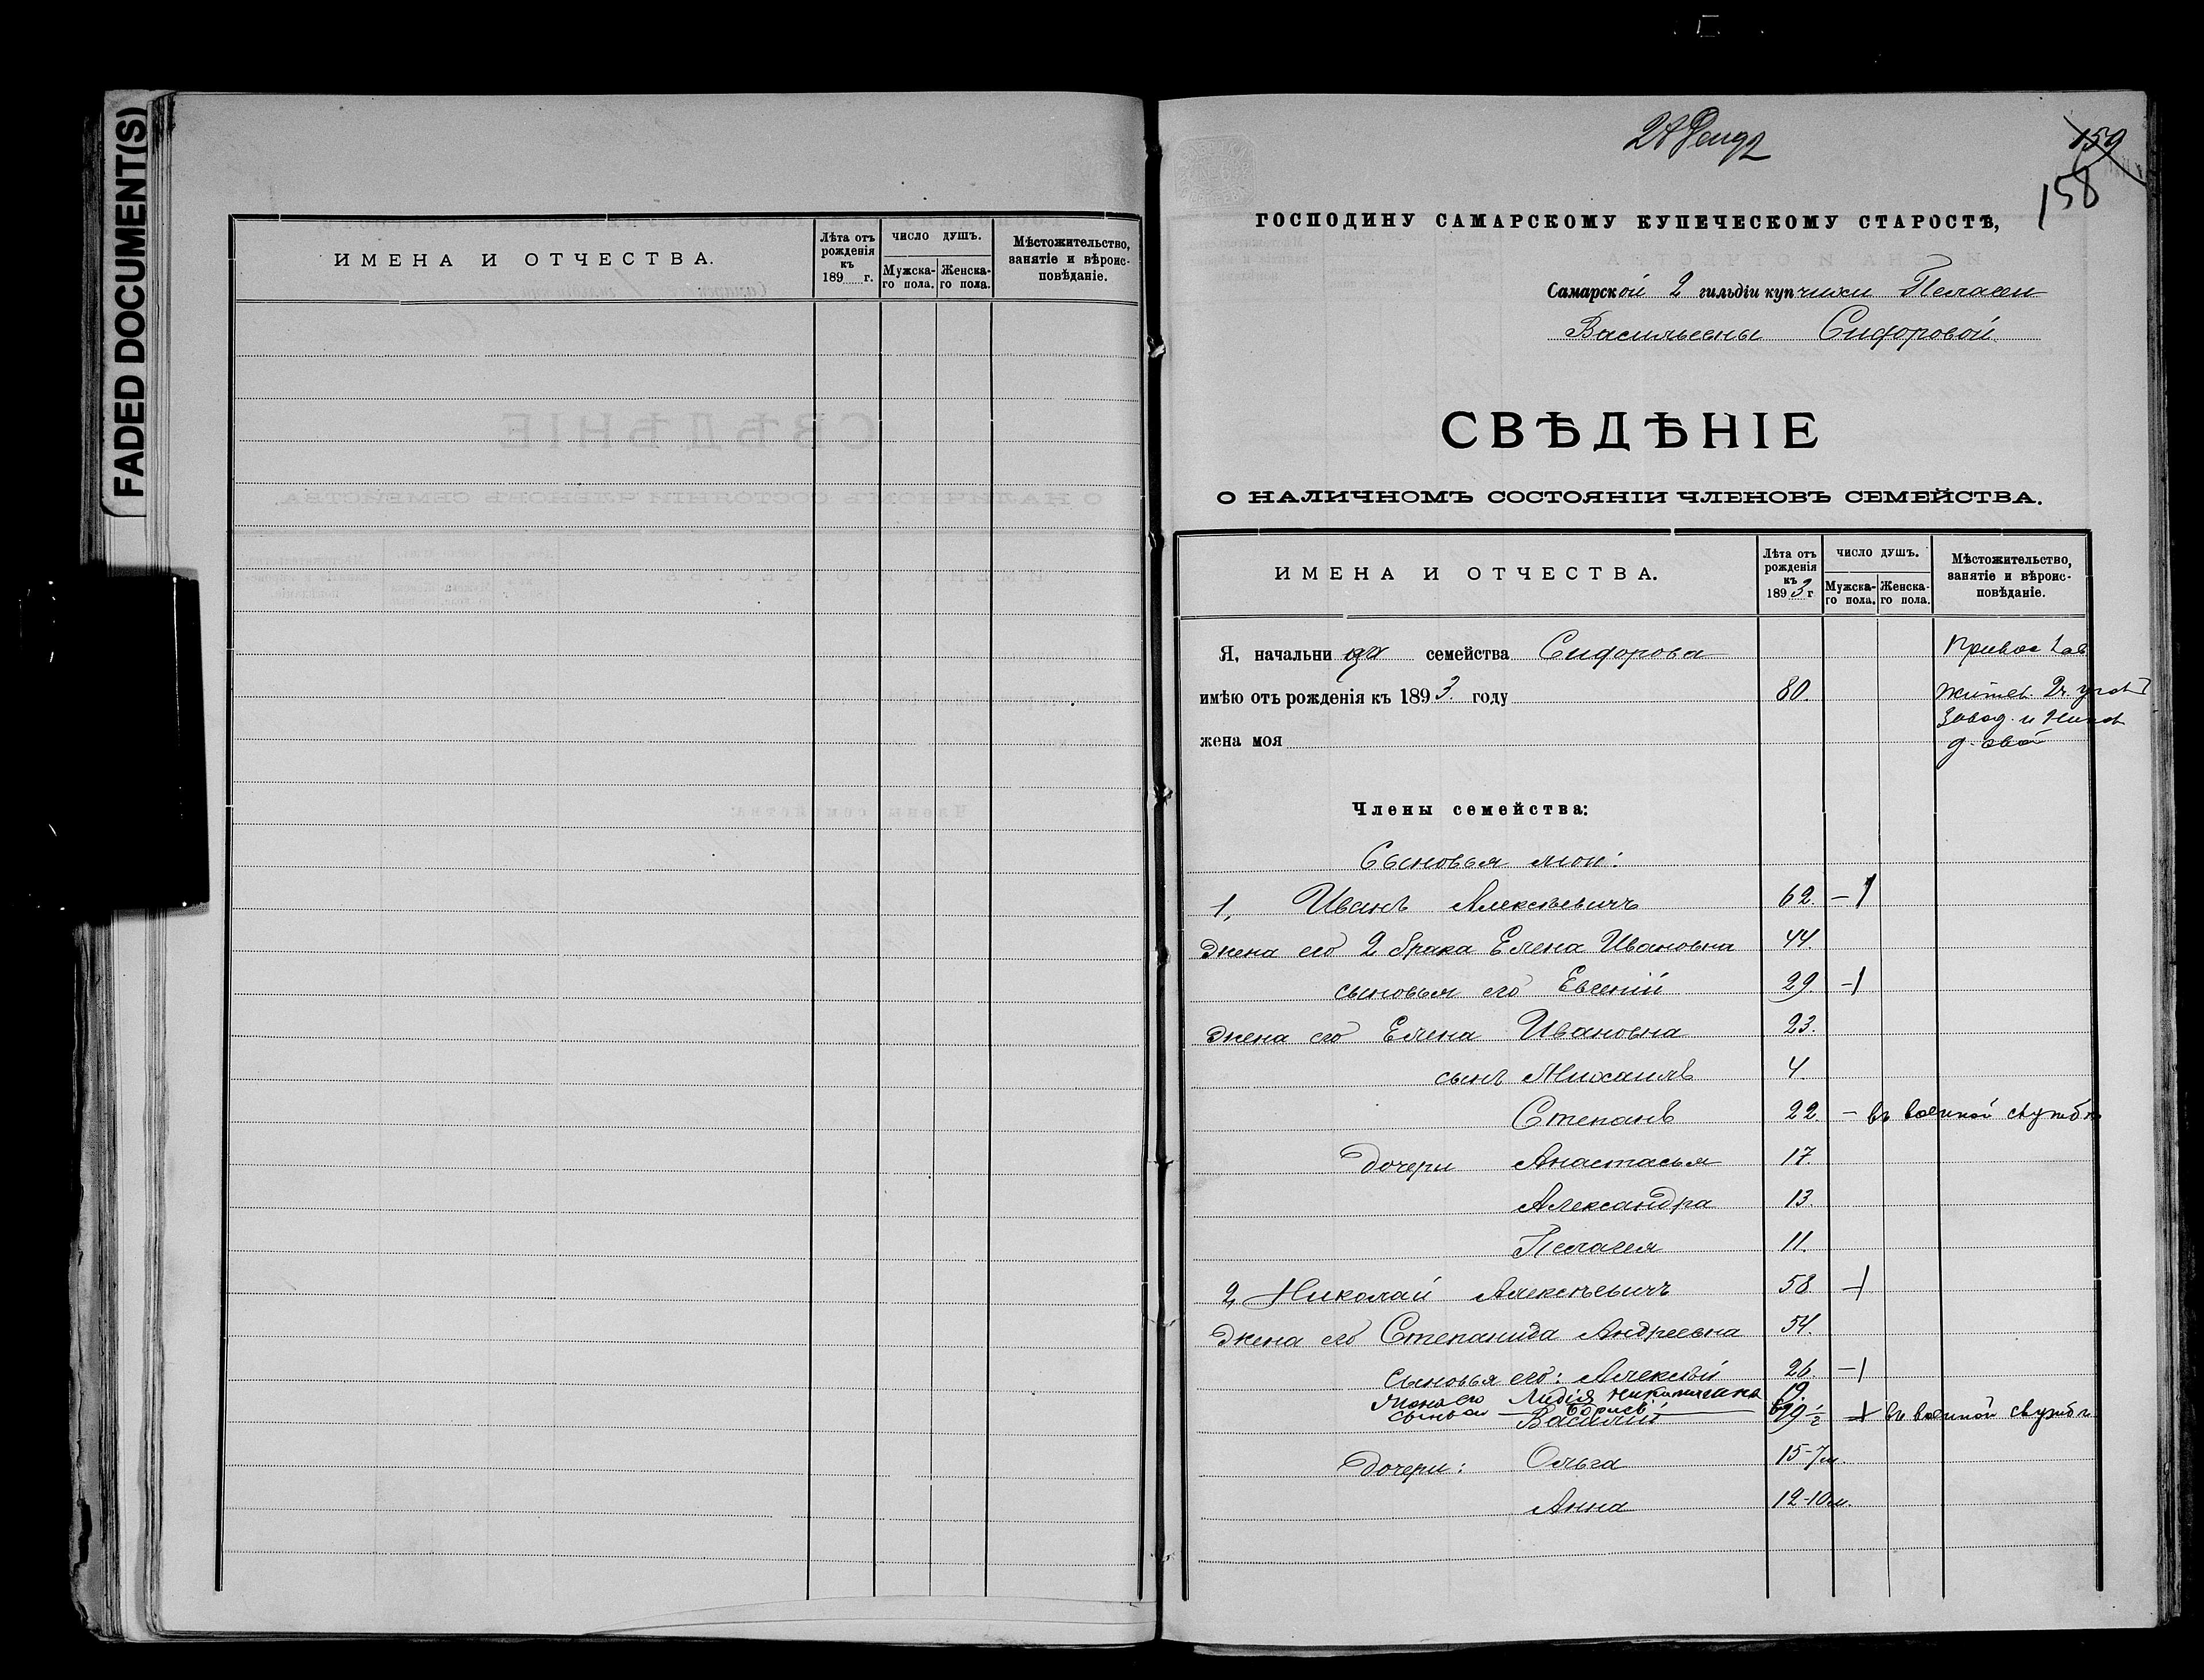 FADED DOCUMENT(S)
ИМЕНА И ОТЧЕСТВА.
Лѣта отъ рожденія къ 189 г.
ЧИСЛО ДУШЪ.
Мужска-го пола.
Женска-го пола.
Мѣстожительство, занятіе и вѣроис-повѣданіе.
159
158
ГОСПОДИНУ САМАРСКОМУ КУПЕЧЕСКОМУ СТАРОСТѢ,
Самарской 2 гильдіи купчихи Пелагеи
Васильевны Сидоровой
СВѢДѢНІЕ
О НАЛИЧНОМЪ СОСТОЯНІИ ЧЛЕНОВЪ СЕМЕЙСТВА.
ИМЕНА И ОТЧЕСТВА.
Лѣта отъ рожденія къ 1893 г
ЧИСЛО ДУШЪ.
Мужска-го пола.
Женска-го пола.
Мѣстожительство, занятіе и вѣроис-повѣданіе.
Я, начальница семейства Сидорова
имѣю отъ рожденія къ 1893. году 80.
жена моя
Члены семейства:
Сыновья мои:
1, Иванъ Алексѣевичъ 62. – 1
Жена его 2 брака Елена Ивановна 44.
сыновья его Евгеній 29 – 1
Жена его Елена Ивановна 23.
сынъ Михаилъ 4.
Степанъ 22. – въ военной службѣ
Дочери Анастасья 17.
Александра 13.
Пелагея 11.
2, Николай Алексѣевичъ 58. – 1
Жена его Степанида Андреевна 54.
Сыновья его: Алексѣй 26. – 1
жена его Лидія 19.
сынъ Борисъ
Василій въ военной службѣ
Дочери: Ольга 15-7м
Анна 12-10м.